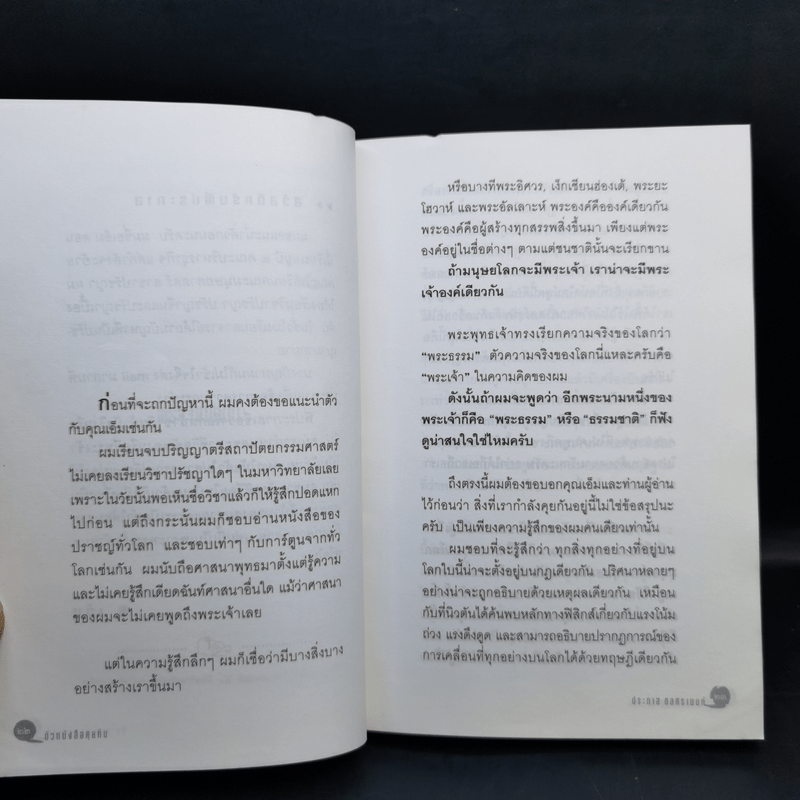 ก่อนที่จะถกปัญหานี้ ผมคงต้องขอแนะนำตัว
กับคุณเอ็มเช่นกัน
ผมเรียนจบปริญญาตรีสถาปัตยกรรมศาสตร์
ไม่เคยลงเรียนวิชาปรัชญาใดๆ ในมหาวิทยาลัยเลย
เพราะในวัยนั้นพอเห็นชื่อวิชาแล้วก็ให้รู้สึกปอดแหก
ไปก่อน แต่ถึงกระนั้นผมก็ชอบอ่านหนังสือของ
ปราชญ์ทั่วโลก และชอบเท่าๆ กับการ์ตูนจากทั่ว
โลกเช่นกัน ผมนับถือศาสนาพุทธมาตั้งแต่รู้ความ
และไม่เคยรู้สึกเดียดฉันท์ศาสนาอื่นใด แม้ว่าศาสนา
ของผมจะไม่เคยพูดถึงพระเจ้าเลย
แต่ในความรู้สึกลึกๆ ผมก็เชื่อว่ามีบางสิ่งบาง
อย่างสร้างเราขึ้นมา
หรือบางทีพระอิศวร, เง็กเซียนฮ่องเต้, พระยะ
โฮวาห์ และพระอัลเลาะห์ พระองค์คือองค์เดียวกัน
พระองค์คือผู้สร้างทุกสรรพสิ่งขึ้นมา เพียงแต่พระ
องค์อยู่ในชื่อต่างๆ ตามแต่ชนชาตินั้นจะเรียกขาน
ถ้ามนุษยโลกจะมีพระเจ้า เราน่าจะมีพระ
เจ้าองค์เดียวกัน
พระพุทธเจ้าทรงเรียกความจริงของโลกว่า
“พระธรรม” ตัวความจริงของโลกนี่แหละครับคือ
“พระเจ้า” ในความคิดของผม
ดังนั้นถ้าผมจะพูดว่า อีกพระนามหนึ่งของ
พระเจ้าก็คือ “พระธรรม” หรือ “ธรรมชาติ” ก็ฟัง
ดูน่าสนใจใช่ไหมครับ
ถึงตรงนี้ผมต้องขอบอกคุณเอ็มและท่านผู้อ่าน
ไว้ก่อนว่า สิ่งที่เรากำลังคุยกันอยู่นี้ไม่ใช่ข้อสรุปนะ
ครับ เป็นเพียงความรู้สึกของผมคนเดียวเท่านั้น
ผมชอบที่จะรู้สึกว่า ทุกสิ่งทุกอย่างที่อยู่บน
โลกใบนี้น่าจะตั้งอยู่บนกฎเดียวกัน ปริศนาหลายๆ
อย่างน่าจะถูกอธิบายด้วยเหตุผลเดียวกัน เหมือน
กับที่นิวตันได้ค้นพบหลักทางฟิสิกส์เกี่ยวกับแรงโน้ม
ถ่วง แรงดึงดูด และสามารถอธิบายปรากฏการณ์ของ
การเคลื่อนที่ทุกอย่างบนโลกได้ด้วยทฤษฎีเดียวกัน